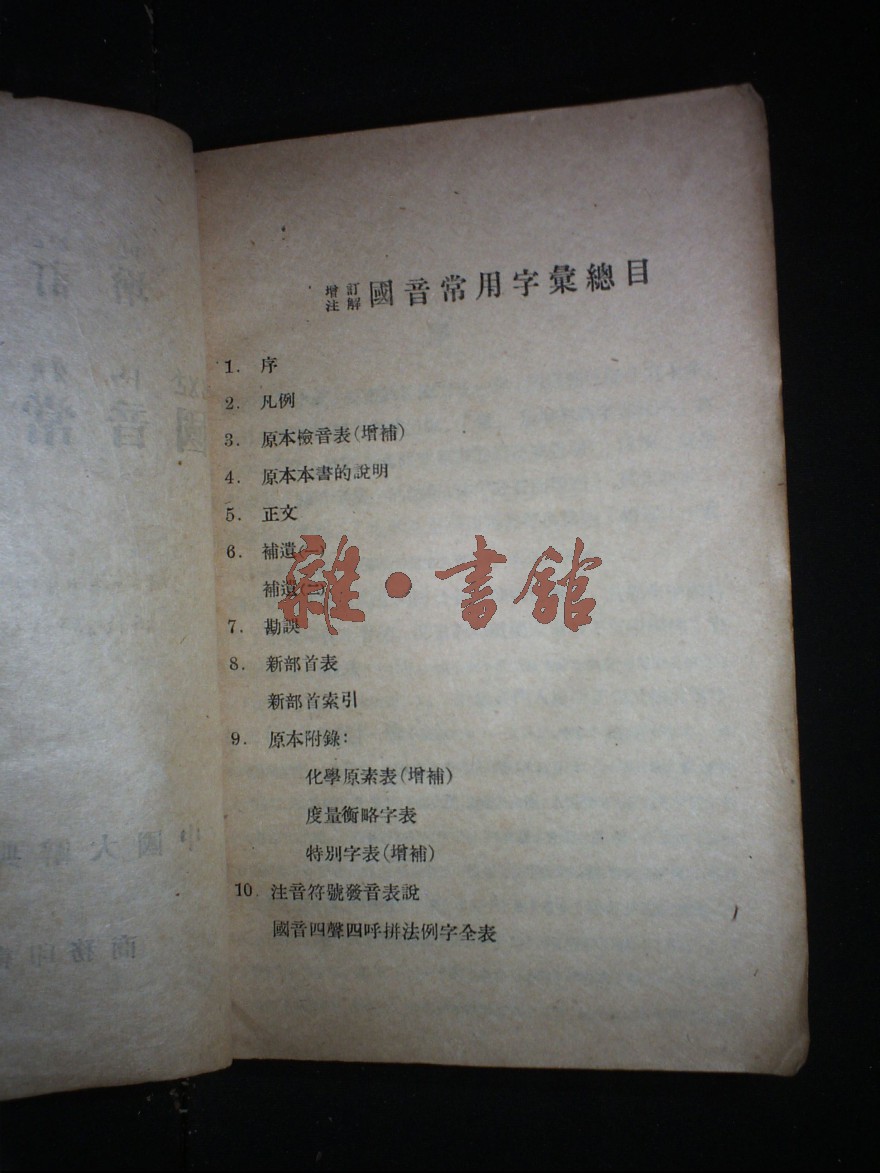 增訂注解 國音常用字彙總目
1. 序
2. 凡例
3. 原本檢音表(增補)
4. 原本本書的說明
5. 正文
6. 補遺(一)
補遺(二)
7. 勘誤
8. 新部首表
新部首索引
9. 原本附錄:
化學原素表(增補)
度量衡略字表
特別字表(增補)
10. 注音符號發音表說
國音四聲四呼拼法例字全表
雜·書館